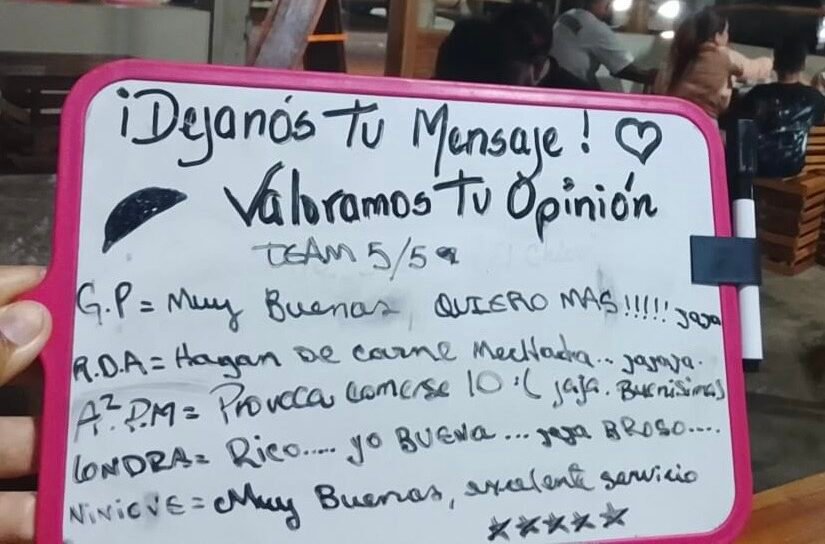 ¡Dejanós Tu Mensaje!
Valoramos Tu Opinión
TEAM 5/5
G.P = Muy Buenas, QUIERO MAS!!!!! jaja
R.D.A = Hagan De carne Mechada.. jajaja.
A².P.M = Provoca comerse 10 :( jaja. Buenisimas
LONDRA = Rico.... yo BUENA... jaja BROSO....
NINIEVE = Muy Buenas, excelente servicio